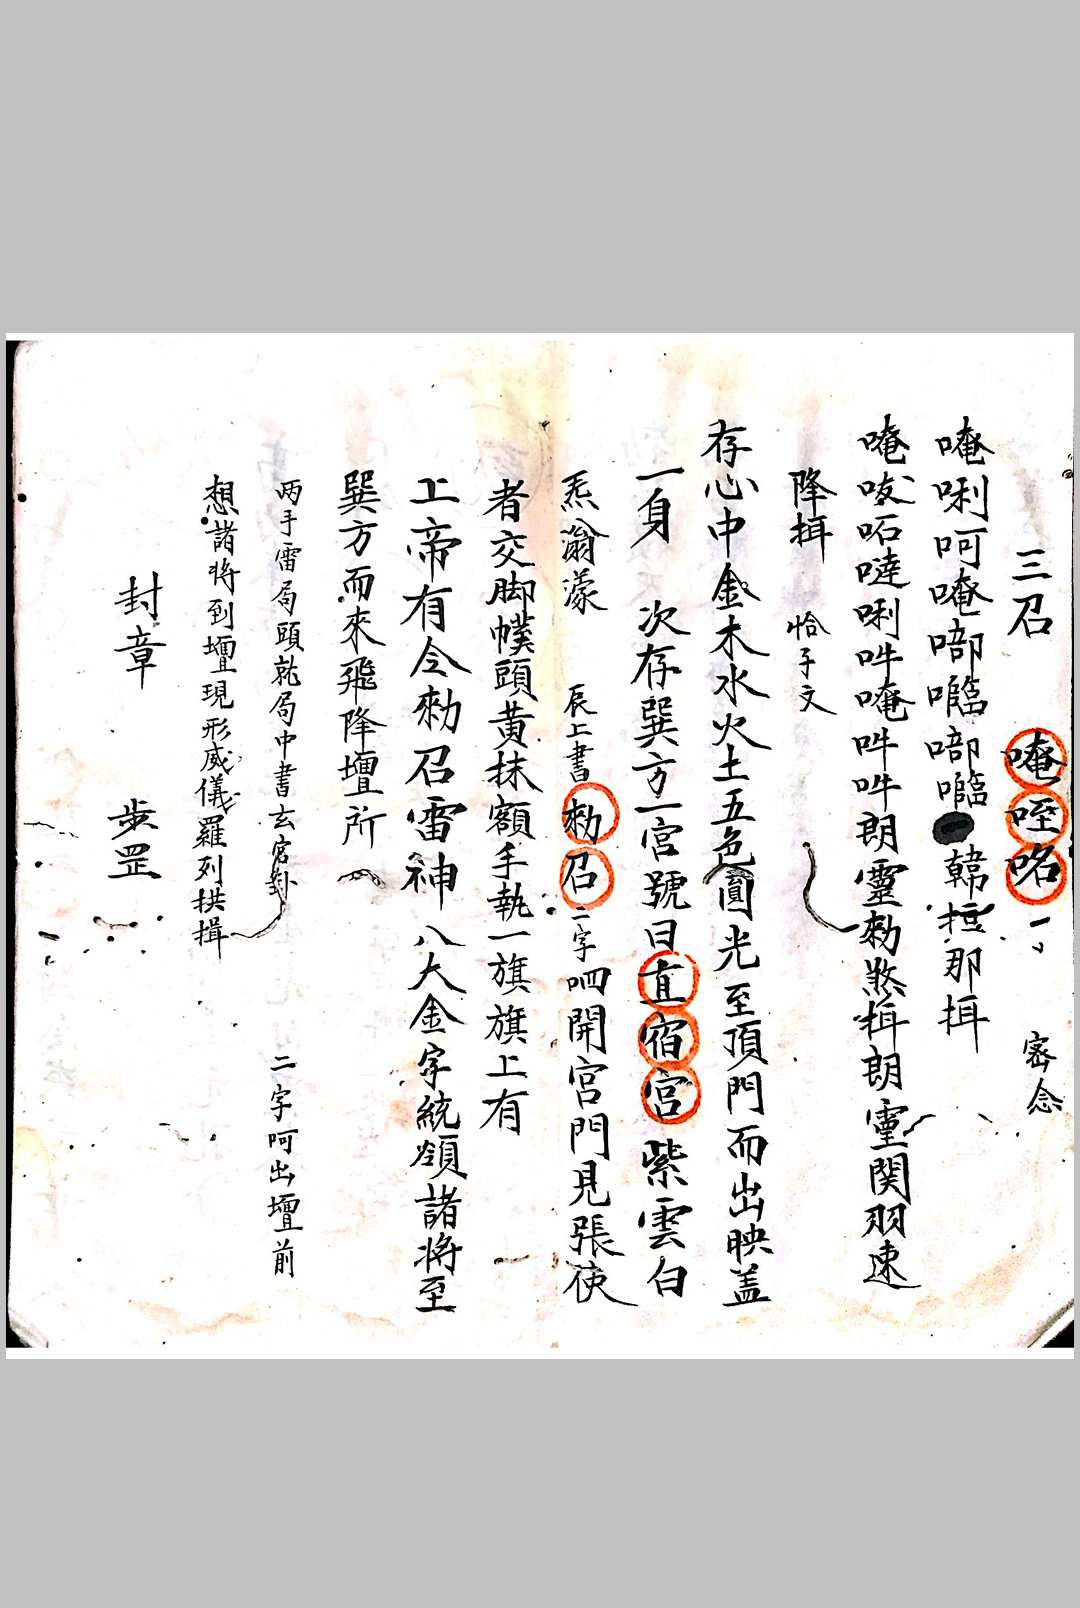 三召 唵咥咯 密念
唵唎呵唵㗑㘕㗑㘕 韓抂那揖
唵 㖿噠唎吽唵吽吽朗靈勅煞揖朗靈関羽速
降揖 恰子文
存心中金木水火土五色圓光至頂門而出映盖
一身 次存巽方一宮號曰直宿宮紫雲白
炁滃濛 辰上書勅召二字呬開宮門見張使
者交脚幞頭黄抹額手執一旗旗上有
上帝有令勅召雷神 八大金字統領諸將至
巽方而來飛降壇所
两手雷局頭就局中書玄宮卦 二字呵出壇前
想諸將到壇現形威儀羅列拱揖
封章 步罡